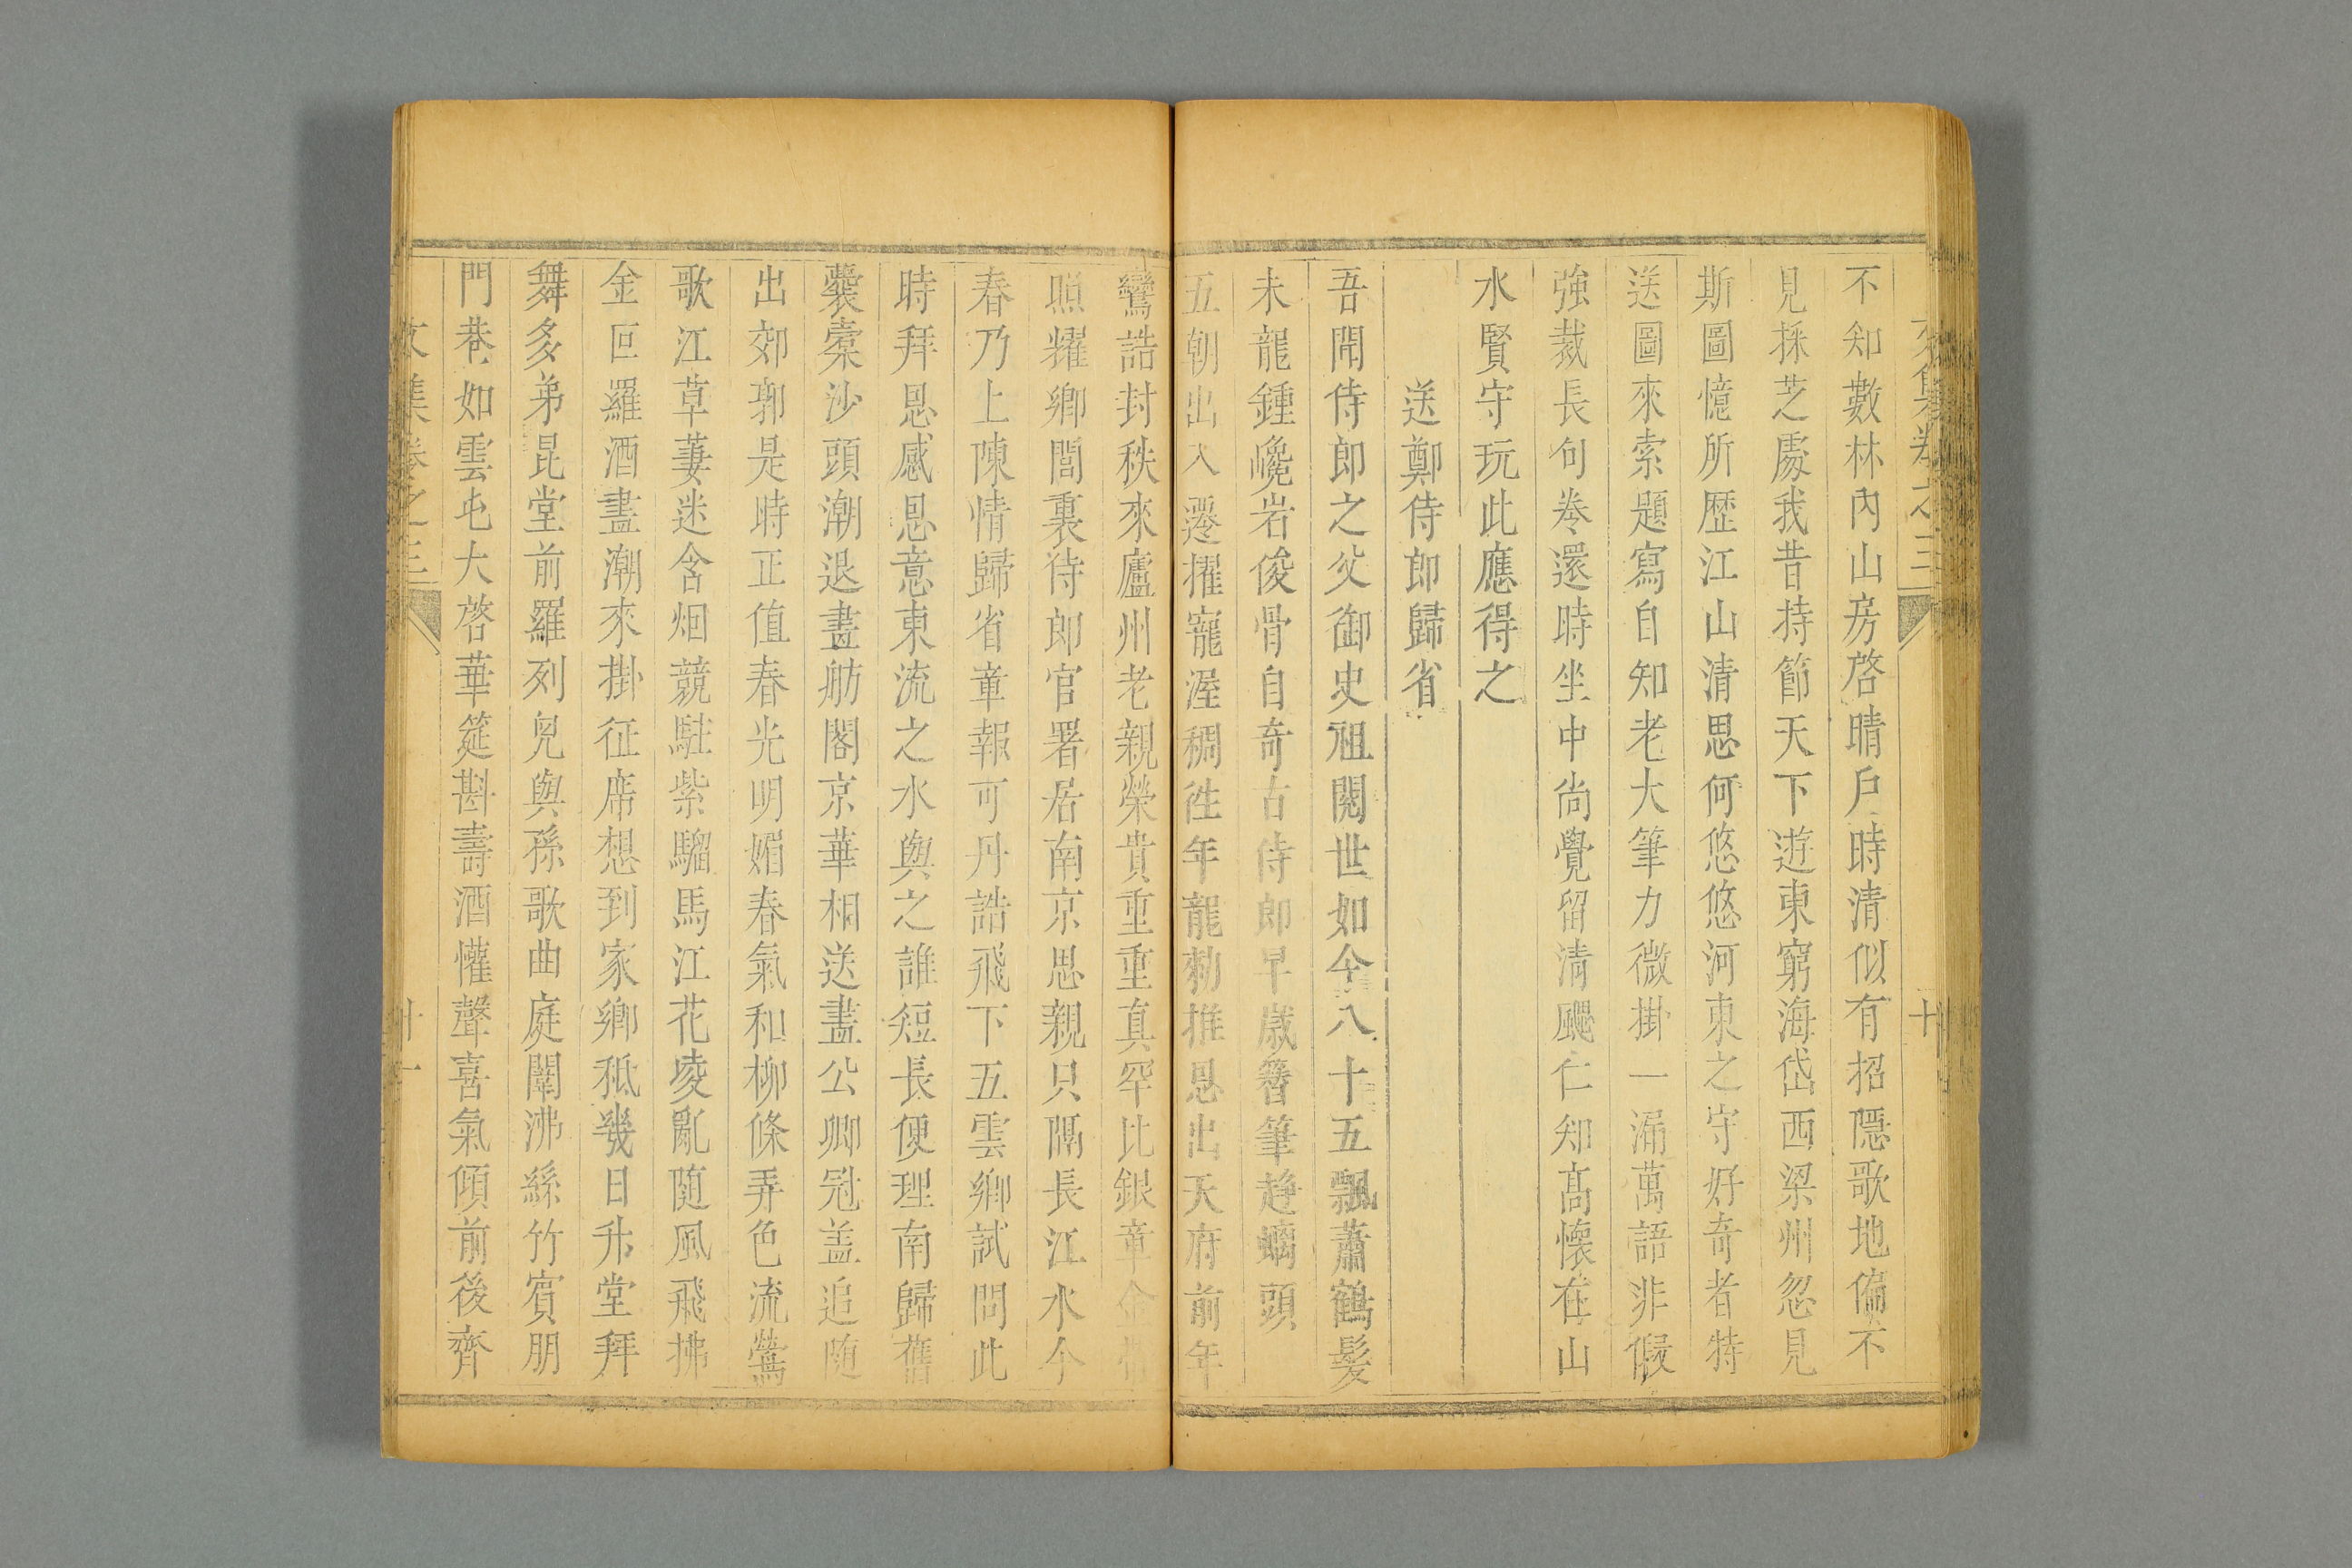 文集卷之三
十
不知數林內山房啓晴戶時清似有招隱歌地偏不
見採芝處我昔持節天下遊東窮海岱西梁州忽見
斯圖憶所歷江山清思何悠悠河東之守好奇者特
送圖來索題寫自知老大筆力微掛一漏萬語非假
強裁長句卷還時坐中尚覺留清颸仁知髙懷在山
水賢守玩此應得之
送鄭侍郎歸省
吾聞侍郎之父御史祖閱世如今八十五飄蕭鶴髪
未龍鍾巉岩俊骨自奇古侍郎早歲簪筆趍螭頭
五朝出入遷擢寵渥稠徃年龍勑推恩出天府前年
鸞誥封秩來廬州老親榮貴重重真罕比銀章金
照耀鄉閭裏待郎官署居南京思親只隔長江水今
春乃上陳情歸省章報可丹誥飛下五雲鄉試問此
時拜恩感恩意東流之水與之誰短長便理南歸舊
褁橐沙頭潮退畫舫閣京華相送盡公卿冠盖追随
出郊郭是時正值春光明媚春氣和柳條弄色流鶯
歌江草萋迷含烟競駐紫騮馬江花凌亂随風飛拂
金叵羅酒盡潮來掛征席想到家鄉秪幾日升堂拜
舞多弟昆堂前羅列兒與孫歌曲庭闈沸絲竹賓朋
門巷如雲屯大啓華筵斟壽酒懽聲喜氣傾前後齊
文集卷之三
十一